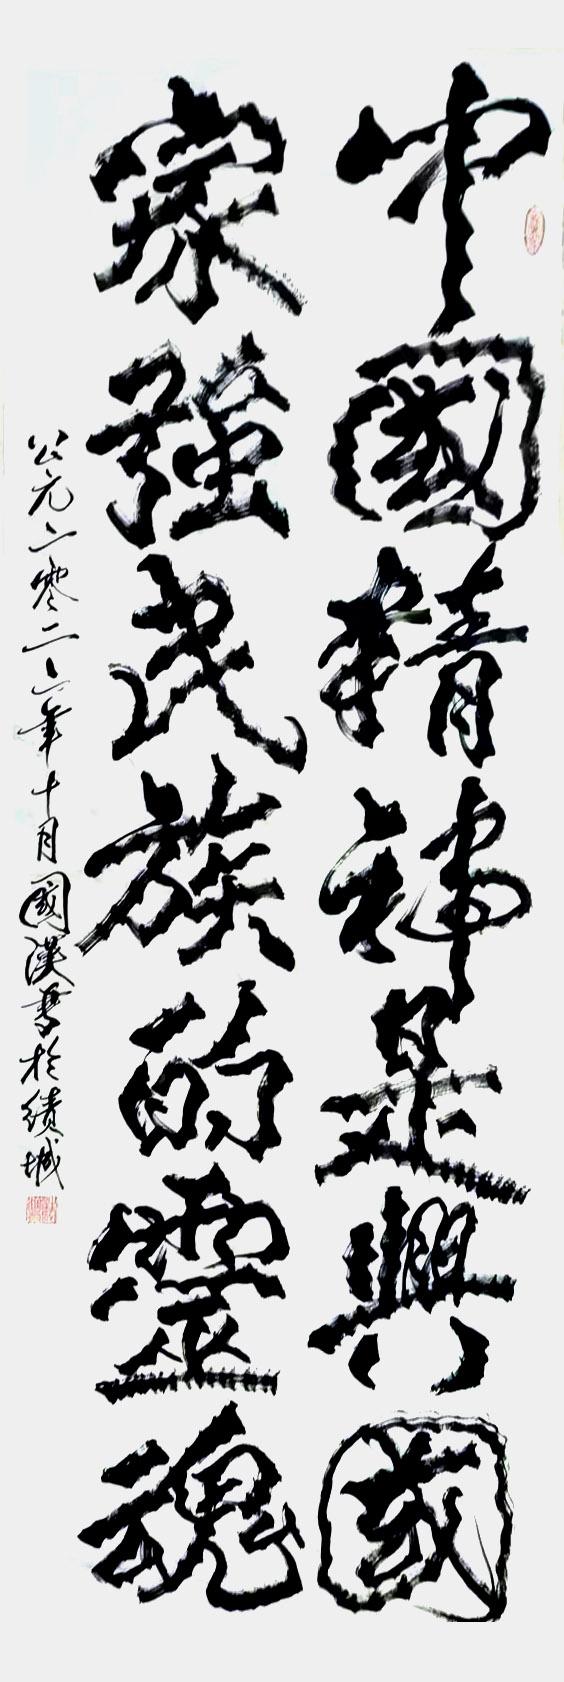 中國精神是興國
家強民族的靈魂
公元二零二六年十月國漢書於績城